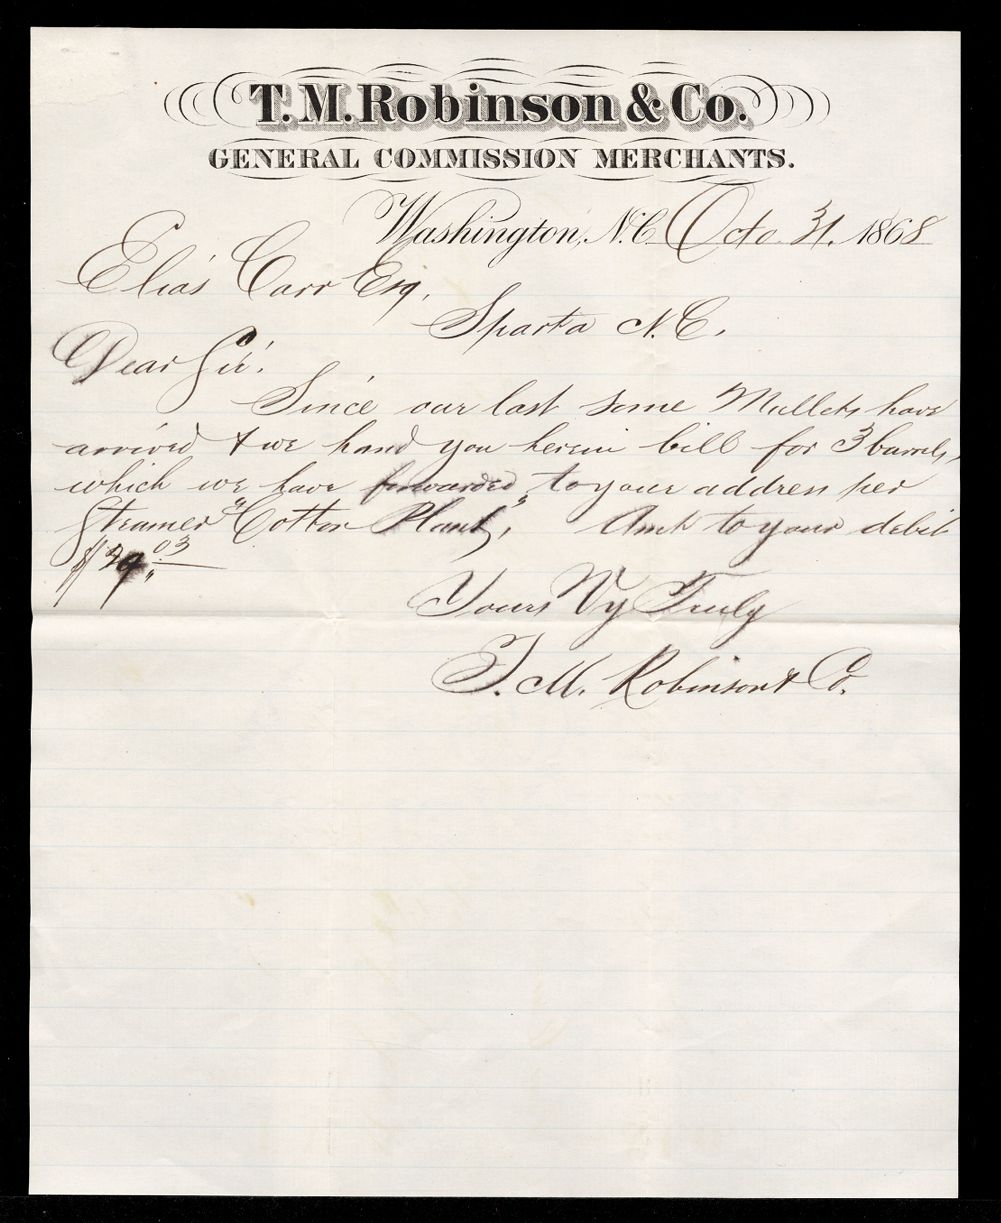 T. M. Robinson & Co.
GENERAL COMMISSION MERCHANTS.
Washington, N.C. Octo. 31. 1868
Elias Carr Esq.
Sparta N.C.
Dear Sir.
Since our last some Mullets have
arrived & we hand you herein bill for 3 barrels,
which we have forwarded, to your address per
Steamer "Cotton Plant", Amt to your debit
$ 03
Yours Vy Truly
T. M. Robinson & Co.